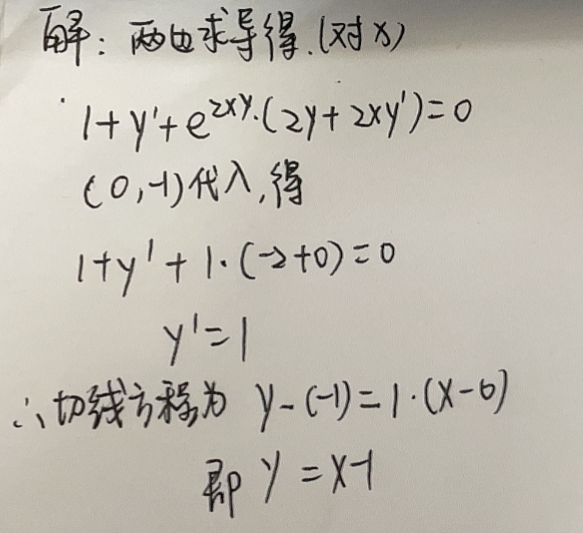 解：两边求导得.(对x)
1+y'+e^{2xy}·(2y+2xy')=0
(0,-1)代入,得
1+y'+1·(-2+0)=0
y'=1
∴切线方程为 y-(-1)=1·(x-0)
即 y=x-1